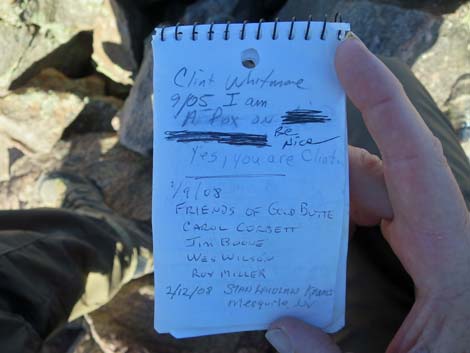 Clint Whitmore
9/05 I am
A Pox on
Be
Nice
Yes, you are Clint.
1/9/08
FRIENDS OF GOLD BUTTE
CAROL CORBETT
JIM BOONE
WES WILSON
ROY MILLER
2/12/08 STAN
Mesquite, NV